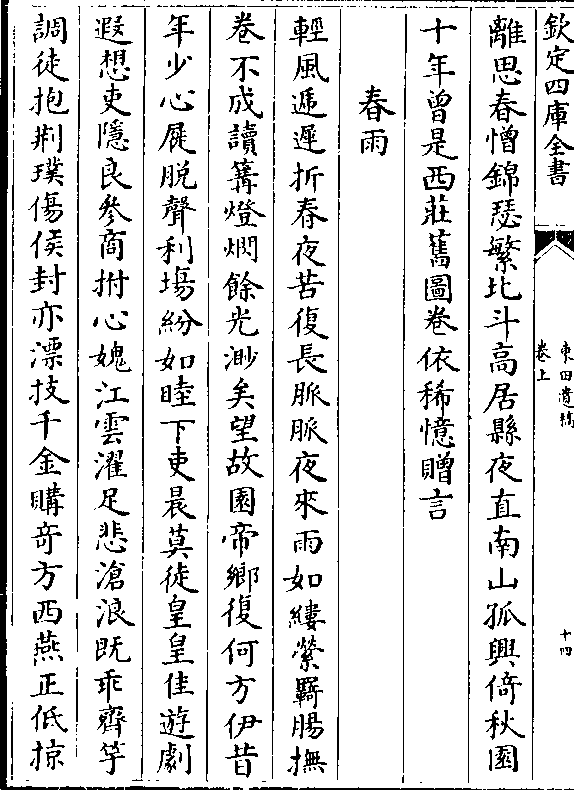 欽定四庫全書
東田遺稿
卷上
十四
離思春憎錦瑟繁北斗高居縣夜直南山孤興倚秋園
十年曾是西莊舊圖卷依稀憶贈言
春雨
輕風遞遲折春夜苦復長脈脈夜來雨如縷縈羇腸撫
卷不成讀篝燈燜餘光渺矣望故園帝鄉復何方伊昔
年少心屣脫聲利場紛如眭下吏晨莫徒皇皇佳遊劇
遐想吏隱良參商拊心媿江雲濯足悲滄浪既乖齊竽
調徒抱荆璞傷侯封亦漂技千金購奇方西燕正低掠